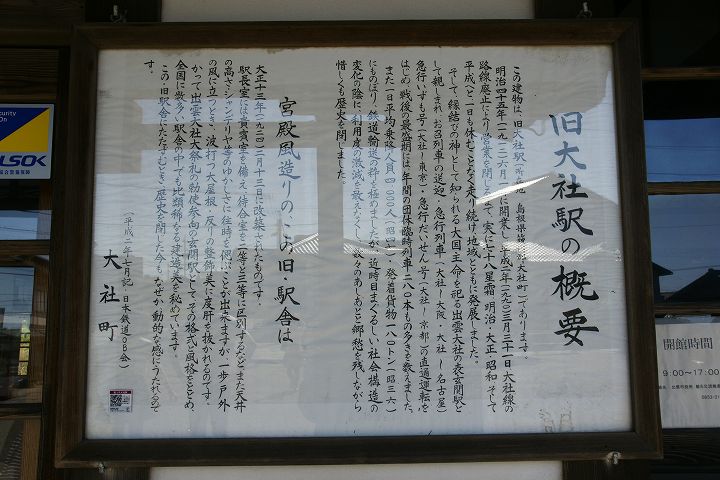 旧大社駅の概要
この建物は、旧大社駅(所在地 島根県簸川郡大社町)であります。
明治四十五年(一九一二)六月一日に開業し、平成二年(一九九〇)三月三十一日大社線の
路線廃止により営業を閉じるまで、実に七十八星霜、明治・大正・昭和そして
平成へと一日も休むことなく走り続け、地域とともに発展しました。
そして、縁結びの神として知られる大国主命を祀る出雲大社の表玄関駅と
して親しまれ、お召列車の送迎、急行列車(大社~大阪・大社~名古屋)
急行いずも号(大社~東京)、急行だいせん号(大社~京都)の直通運転を
はじめ、戦後の最盛期には年間の団体臨時列車二八〇本もの多きを数えました。
また一日平均乗降人員四〇〇〇人(昭四一)発着貨物一八〇トン(昭三六)
にものぼり、鉄道輸送の粋を極めましたが、近時目まぐるしい社会構造の
変化の陰に、利用度の激減を教えなくし、数々のあしあとと郷愁を残しながら
惜しくも歴史を閉じました。
宮殿風造りの、この旧・駅舎は
大正十三年(一九二四)二月十三日に改築されたものです。
駅長室には貴賓室を備え、待合室を二等と三等に区別するなどまた天井
の高さ、シャンデリヤ等のゆかしさに往時を偲ぶことが出来ますが、一歩戸外
の風に立つとき、波打つ大屋根・反りの整飾美に度肝を抜かれるのです。
かつて出雲大社大祭礼の勅使参向の玄関駅としてその格式と風格をとどめ、
全国に数多い駅舎の中でも比類稀なる建造美を秘めています。
この旧駅舎にたたずむとき、歴史を閉じた今も、なぜか動的な感にうたれるので
す。
(平成二年七月記 日本鉄道OB会)
大社町
Security
ALSOK
開館時間
9:00~17:00